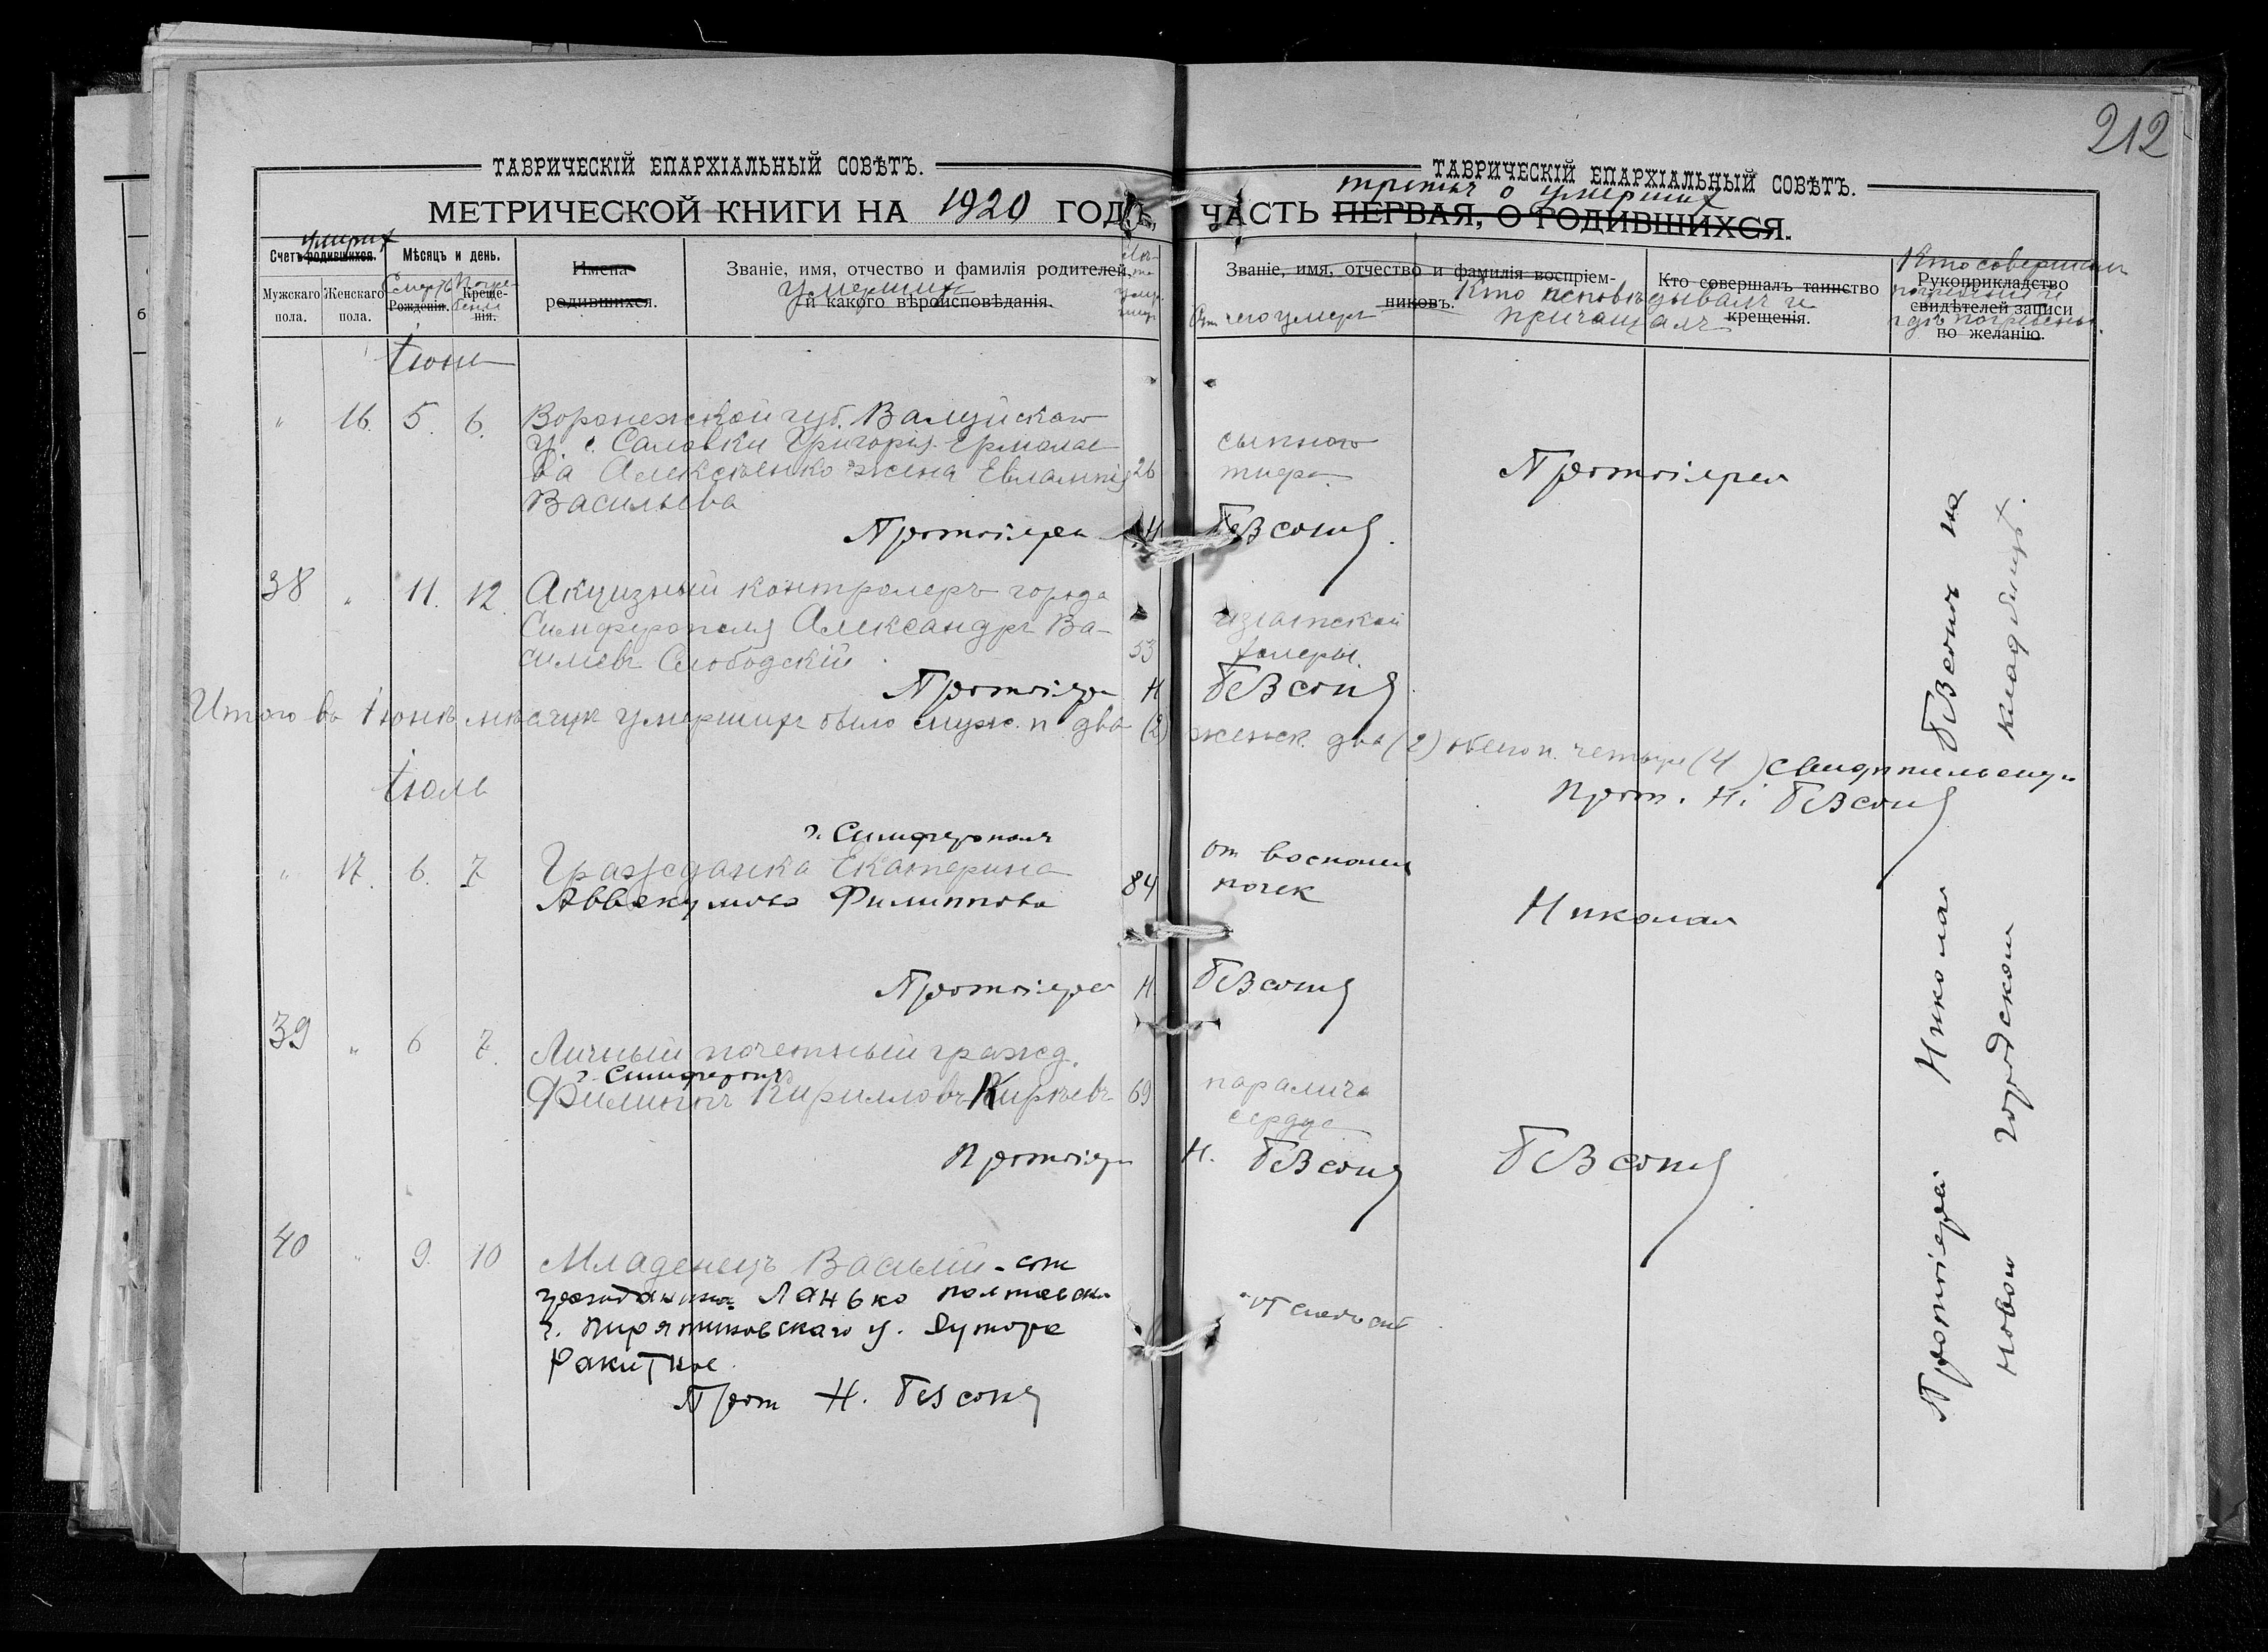 212
ТАВРИЧЕСКІЙ ЕПАРХІАЛЬНЫЙ СОВѢТЪ.
МЕТРИЧЕСКОЙ КНИГИ НА 1920 ГОДЪ,
умерших
Счетъ родившихся.
Мужскаго пола.
Женскаго пола.
Мѣсяцъ и день.
Смерть
Рожденія.
Погребенія
Крещенія.
Имена родившихся.
Званіе, имя, отчество и фамилія родителей,
умерших
и какого вѣроисповѣданія.
ТАВРИЧЕСКІЙ ЕПАРХІАЛЬНЫЙ СОВѢТЪ.
третья о умерших
ЧАСТЬ ПЕРВАЯ, О РОДИВШИХСЯ.
Званіе, имя, отчество и фамилія воспріемниковъ.
От чего умер
Кто исповѣдывалъ и
причащалъ
Кто совершалъ таинство крещенія.
Кто совершалъ
погребеніе и
гдѣ погребены.
Рукоприкладство
свидѣтелей записи
по желанію.
Іюнь
" 16. 5. 6. Воронежской губ. Валуйскаго
у. с. Саловки Григорія Ермолае
ва Алексѣенко жена Евлампія 26
Васильева
сыпного
тифа.
Протоіерей
Протоіерей Н. Безсоновъ
38 " 11. 12. Акцизный контролеръ города
Симферополя Александръ Ва-
сильевъ Слободскій 53
азіатской
холеры.
Протоіерей Н Безсоновъ
Итого въ Іюнѣ мѣсяцѣ умершихъ было муж. п два (2) женск. два (2) обего п. четыре (4) свидѣтельствую
Прот. Н. Безсоновъ
Іюль
г. Симферополя
" 17. 6. 7 Гражданка Екатерина
Аввакумова Филиппова 84
от воспален
почек
Николай
Протоіерей Н. Безсоновъ
39 " 6 7. Личный почетный гражд.
г. Симферополя
Филиппъ Кирилловъ Кирѣевъ 69
паралича
сердца
Протоіерей Н. Безсоновъ
Безсоновъ
40 " 9. 10 Младенецъ Василій - сын
гражданина Ланько полтавской
г. Пирятиновскаго у. Хутора
Ракитное
от слабости
Прот Н. Безсоновъ
Протоіерей Николай Безсоновъ на
новом городском кладбищѣ.